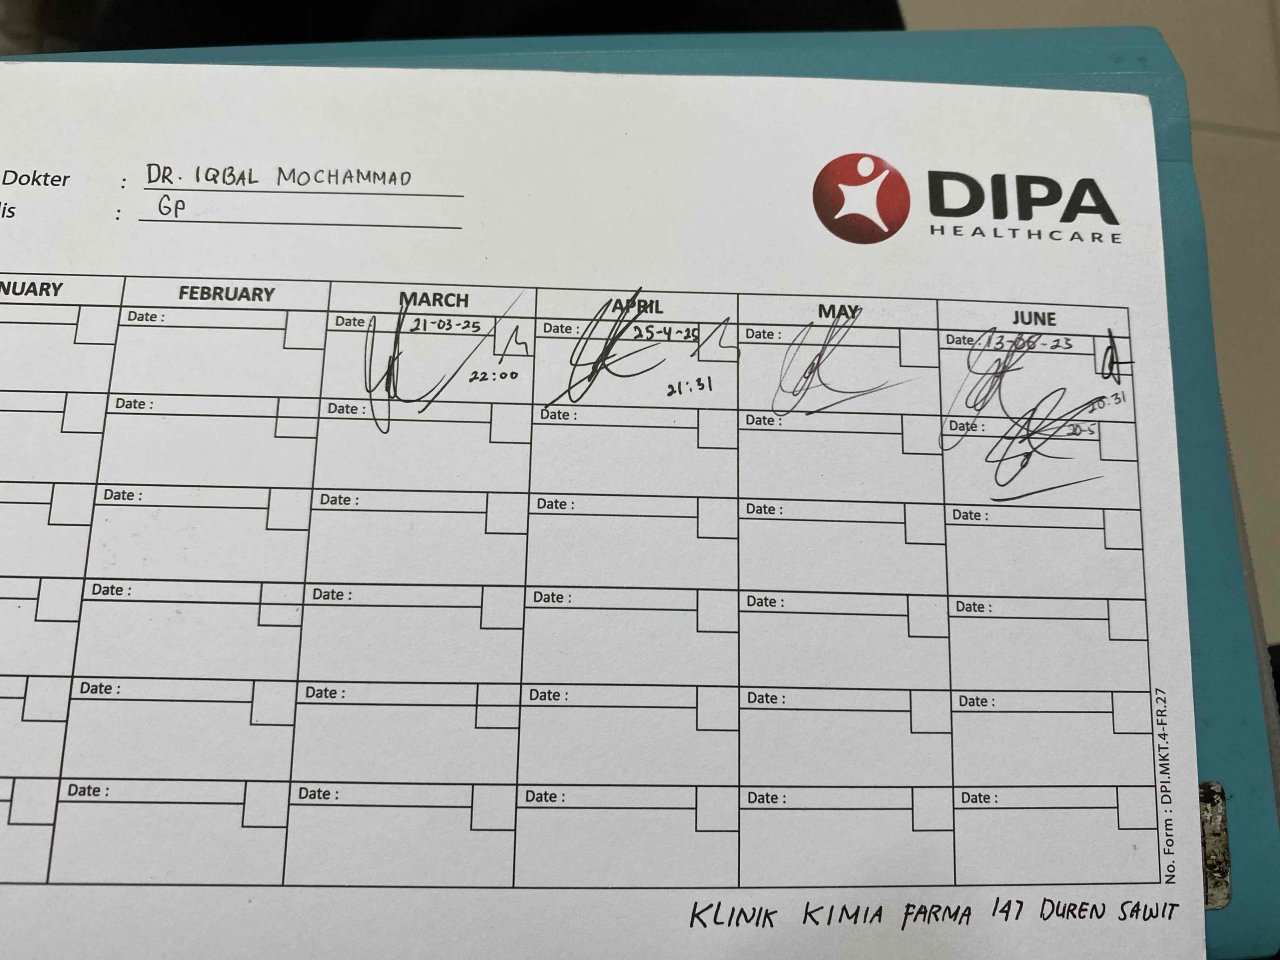 Dokter : DR. IQBAL MOCHAMMAD
lis : GP
DIPA
HEALTHCARE
NUARY FEBRUARY MARCH APRIL MAY JUNE
Date : Date : 21-03-25 Date : 25-4-25 Date : Date : 13-06-25
22:00 21:31 20:31
Date : Date : Date : Date : Date : 20-5
Date : Date : Date : Date : Date :
Date : Date : Date : Date : Date :
Date : Date : Date : Date : Date :
Date : Date : Date : Date : Date :
No. Form : DPI.MKT.4-FR.27
KLINIK KIMIA FARMA 147 DUREN SAWIT